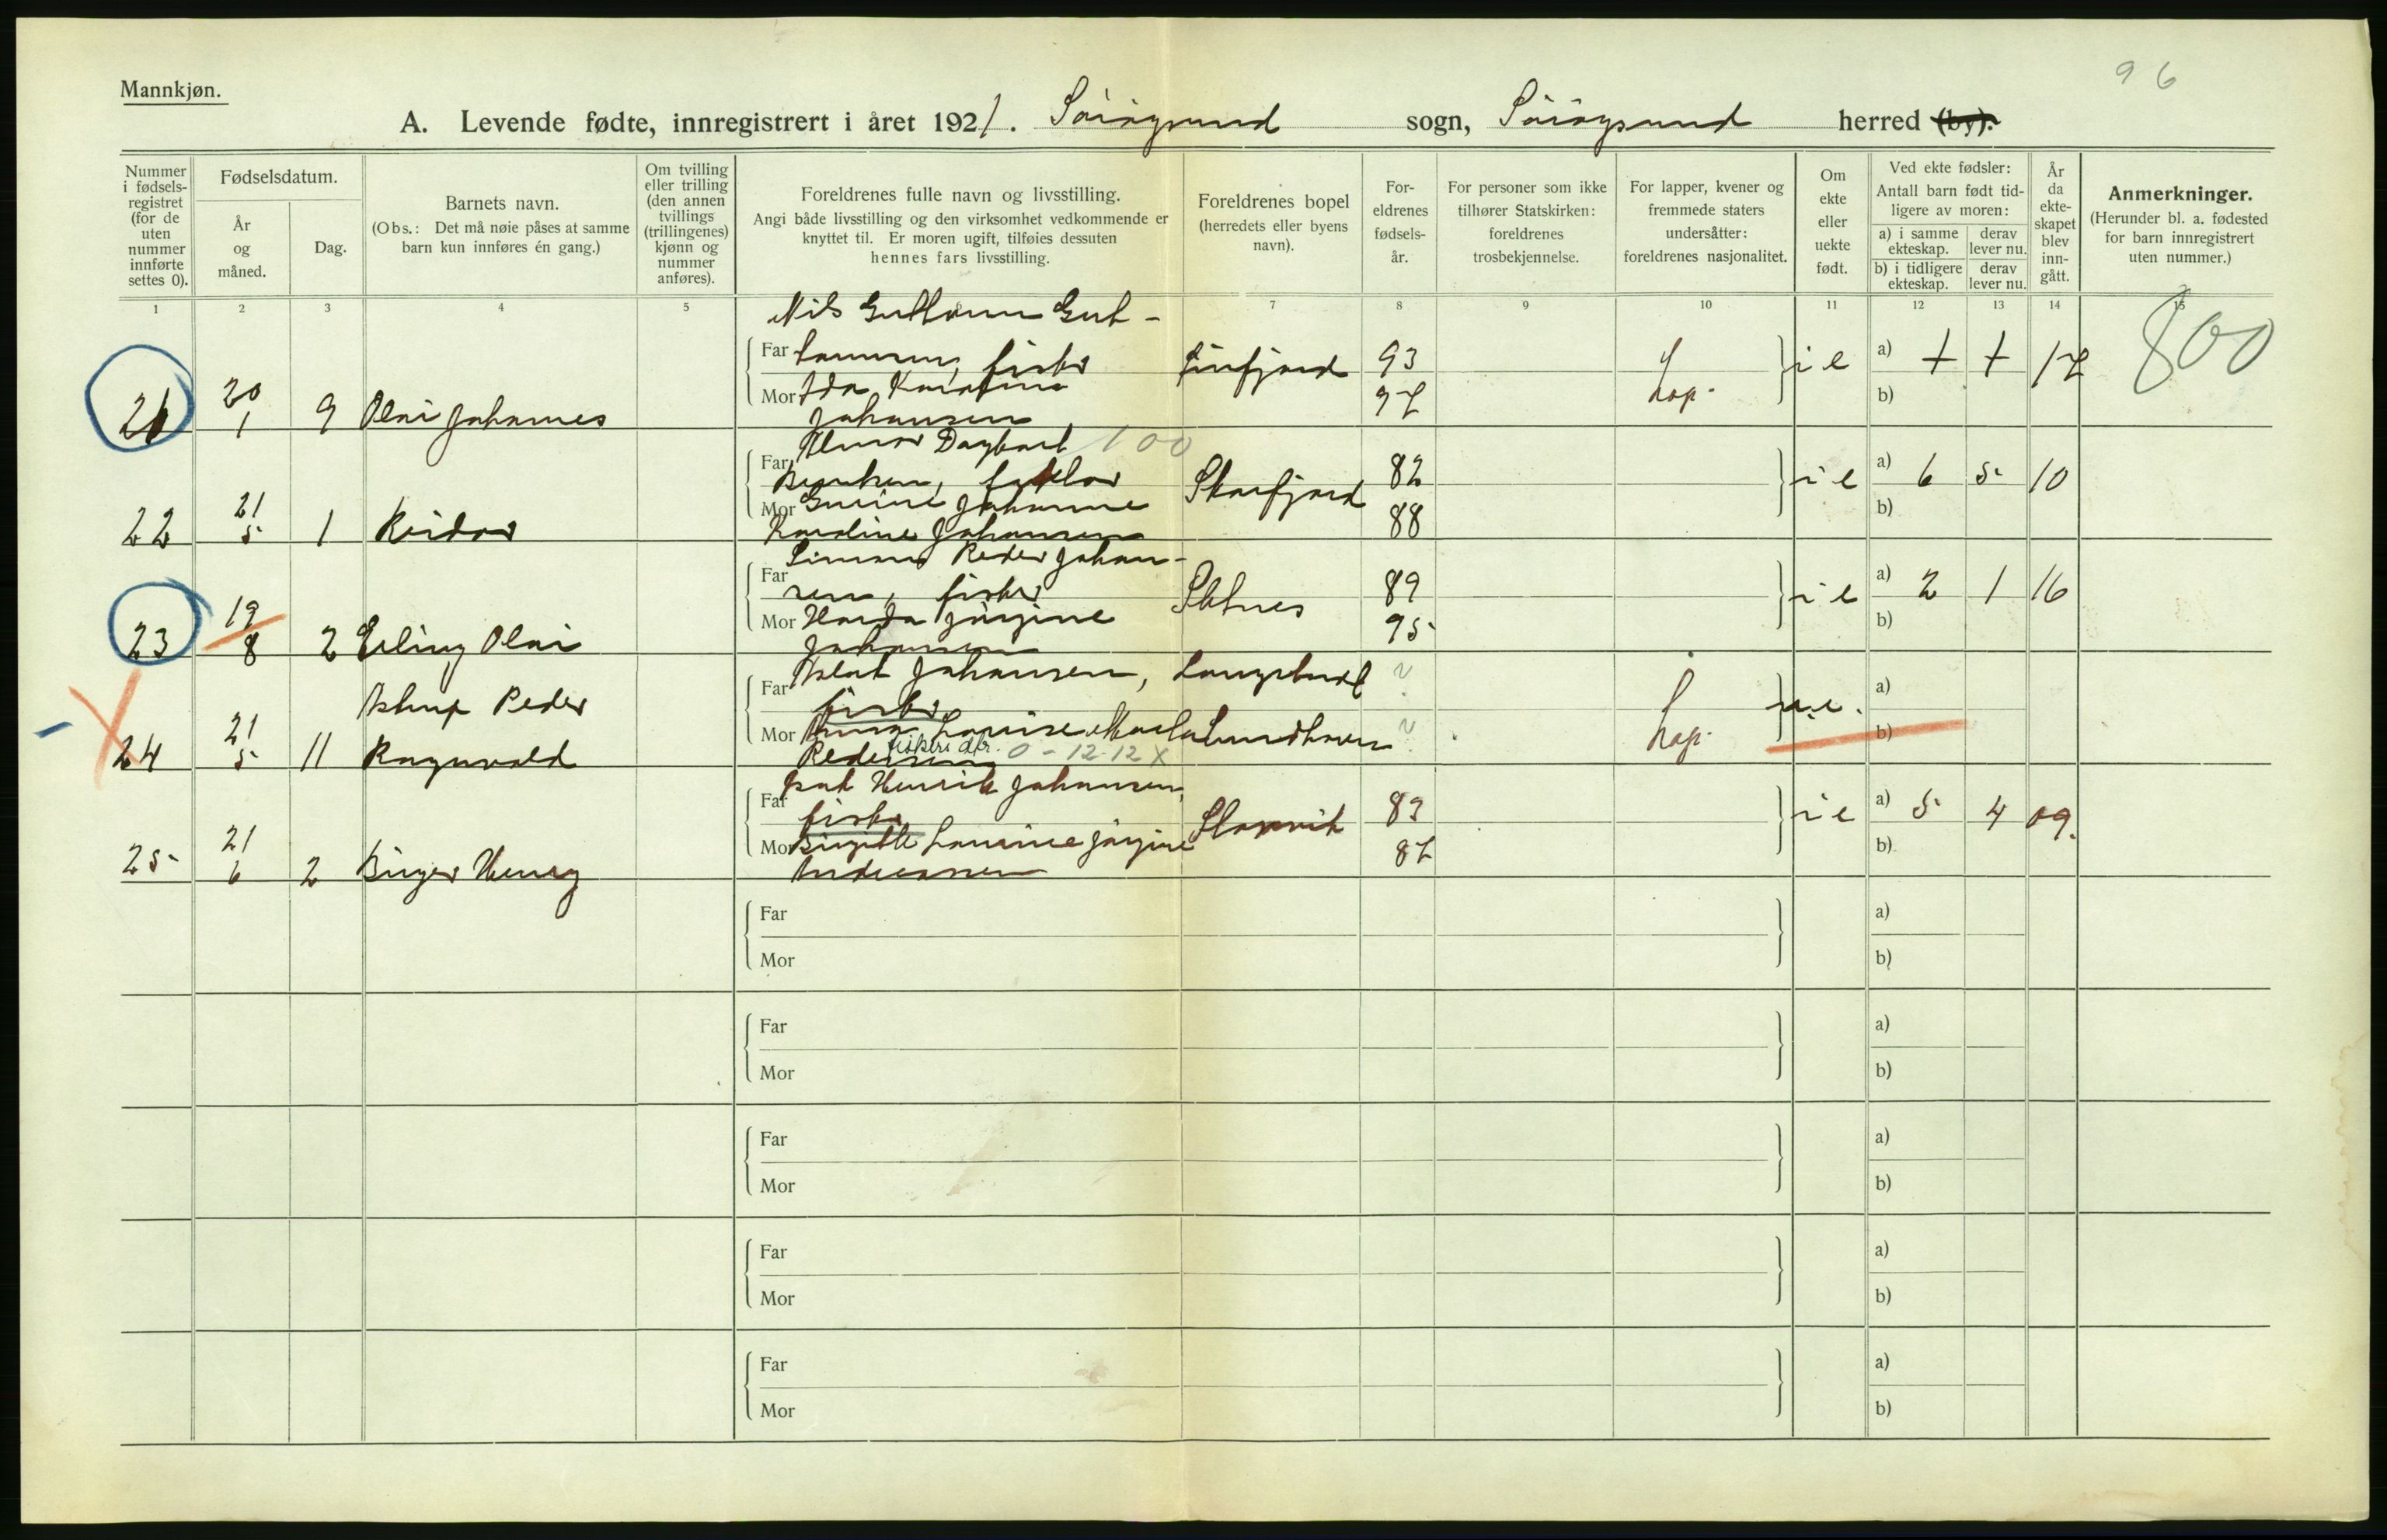 96
Mannkjøn.
A. Levende fødte, innregistrert i året 1921. Sørøysund sogn, Sørøysund herred (by).
Nummer i fødsels-registret (for de uten nummer innførte settes 0).
Fødselsdatum.
År og måned.
Dag.
Barnets navn.
(Obs.: Det må nøie påses at samme barn kun innføres én gang.)
Om tvilling eller trilling (den annen tvillings (trillingenes) kjønn og nummer anføres).
Foreldrenes fulle navn og livsstilling.
Angi både livsstilling og den virksomhet vedkommende er knyttet til. Er moren ugift, tilføies dessuten hennes fars livsstilling.
Foreldrenes bopel (herredets eller byens navn).
For-eldrenes fødsels-år.
For personer som ikke tilhører Statskirken: foreldrenes trosbekjennelse.
For lapper, kvener og fremmede staters undersåtter: foreldrenes nasjonalitet.
Om ekte eller uekte født.
Ved ekte fødsler:
Antall barn født tid-ligere av moren:
a) i samme ekteskap.
derav lever nu.
b) i tidligere ekteskap.
derav lever nu.
År da ekte-skapet blev inn-gått.
Anmerkninger.
(Herunder bl. a. fødested for barn innregistrert uten nummer.)
1 2 3 4 5 7 8 9 10 11 12 13 14 15
800
Nils
Far fisker 93 a)
21 20 1 9 Olai Johannes
Mor Ida 97 Lap. i e b) 17
Johansen
Dagbart 100
Far 82 a) 6 5 10
22 21 5 1 Reidar
Mor Johanne Skarfjord 88 i e b)
Karoline Johansen
Peder Johan-
Far sen, fisker 89 a) 2 1 16
23 19 8 2 Erling Olai
Mor Jørgine 95 i e b)
Johansen
Aslak Johansen, ?
Far fisker a)
24 21 5 11 Astrup Peder Ragnvald
Mor Louise ? Lap. u.e. b)
Pedersen fisker dtr. 0-12-12 X
Isak Henrik Johansen,
Far fisker 83 a) 5 4 09.
25 21 6 2 Birger Henry
Mor Birgitte Laurine Jørgine 87 i e b)
Andreassen
Far a)
Mor b)
Far a)
Mor b)
Far a)
Mor b)
Far a)
Mor b)
Far a)
Mor b)